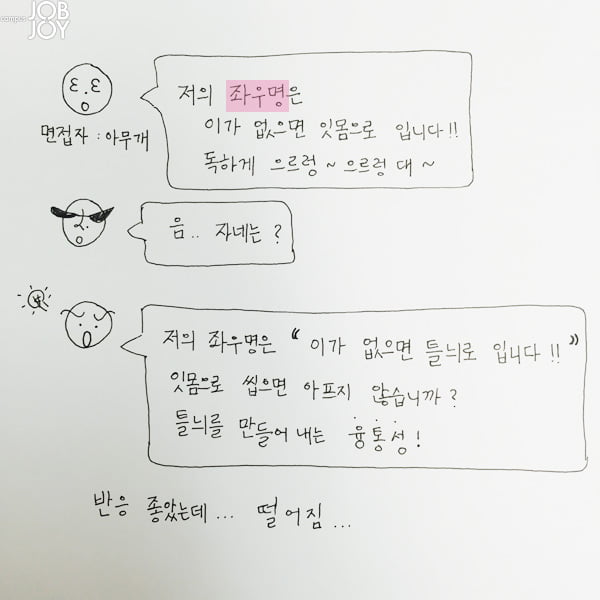 campus JOB
JOY
저의 좌우명은
이가 없으면 잇몸으로 입니다!!
독하게 으르렁~으르렁 대~
면접자 : 아무개
음.. 자네는?
저의 좌우명은 “이가 없으면 틀늬로 입니다!!”
잇몸으로 씹으면 아프지 않습니까?
틀늬를 만들어 내는 융통성!
반응 좋았는데... 떨어짐...